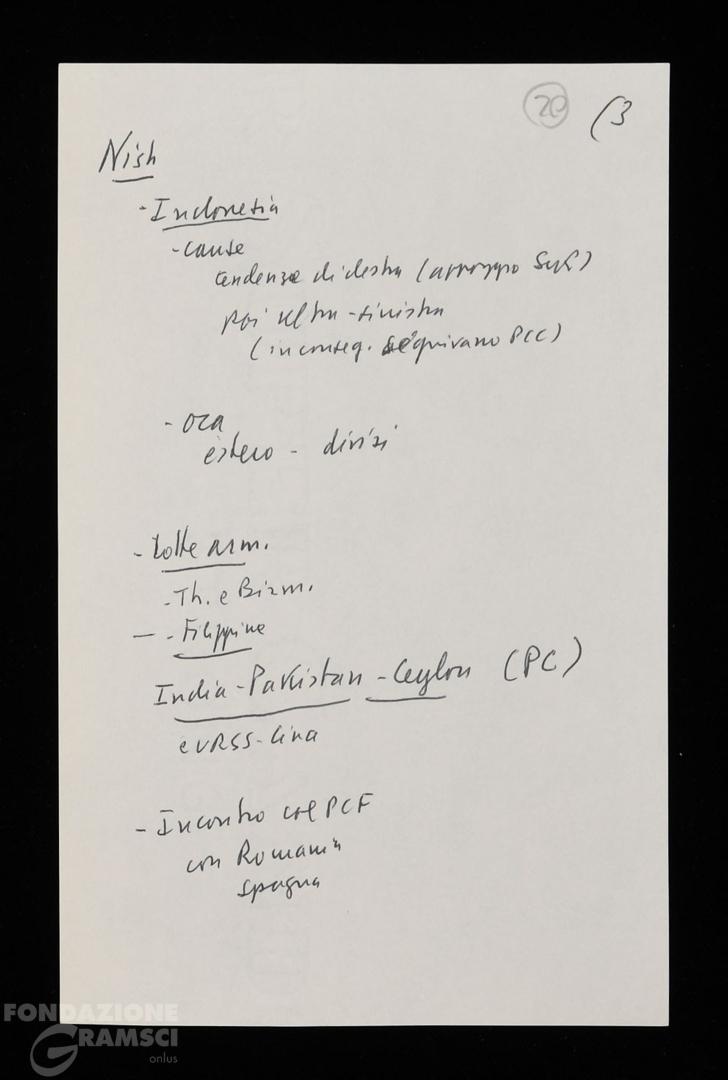 20 (3
Nish
- Indonesia
- cause
tendenze di destra (appoggio Suk)
poi ultra-sinistra
(in conseg. seguivano PCC)
- ora
estero - divisi
- Lotte arm.
- Th. e Birm.
- - Filippine
India - Pakistan - Ceylon (PC)
e URSS - Cina
- Incontro col PCF
con Romania
Spagna
FONDAZIONE
GRAMSCI
onlus